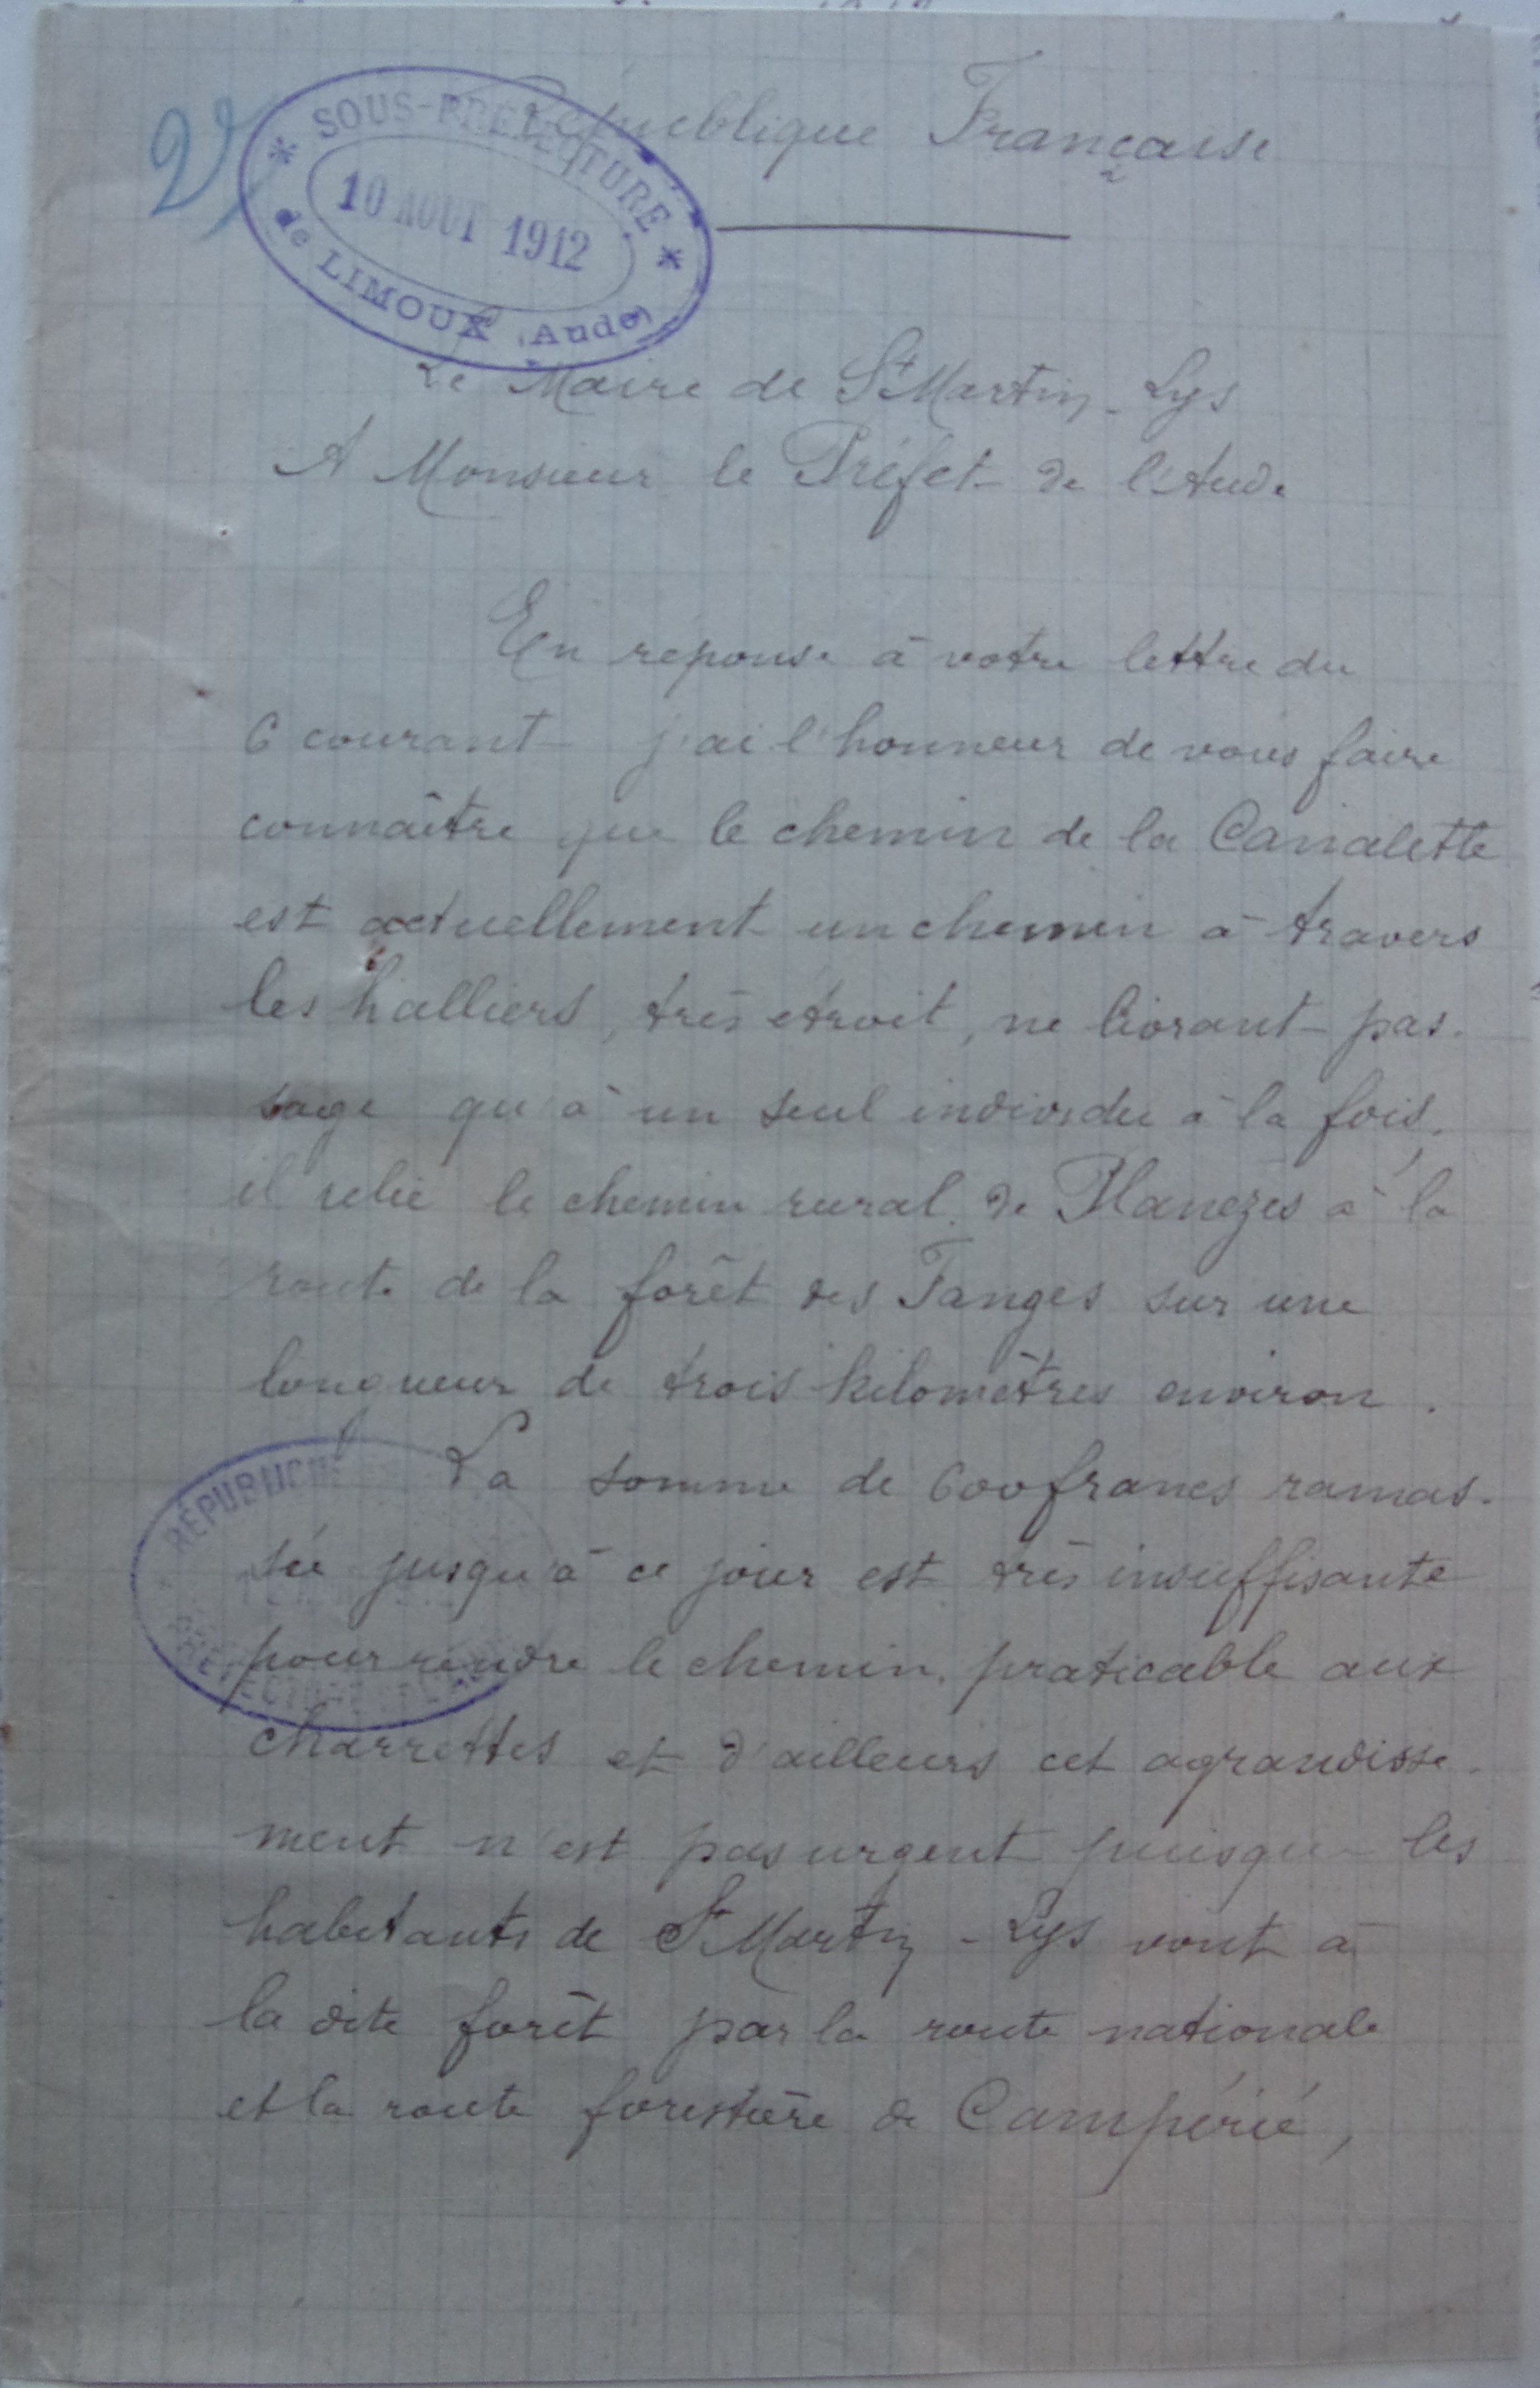 République Française
* SOUS-PRÉFECTURE *
10 AOUT 1912
de LIMOUX (Aude)
Le Maire de St Martin-Lys
A Monsieur le Préfet de l'Aude
En réponse à votre lettre du
6 courant j'ai l'honneur de vous faire
connaître que le chemin de la Canalette
est actuellement un chemin à travers
les halliers, très étroit, ne livrant pas-
sage qu'à un seul individu à la fois,
il relie le chemin rural de Planezes à la
route de la forêt des Fanges sur une
longueur de trois kilomètres environ.
La somme de 600 francs ramas-
sée jusqu'à ce jour est très insuffisante
pour rendre le chemin praticable aux
charrettes et d'ailleurs cet agrandisse-
ment n'est pas urgent puisque les
habitants de St Martin-Lys vont à
la dite forêt par la route nationale
et la route forestière de Campérié,
RÉPUBLIQUE
PRÉFECTURE